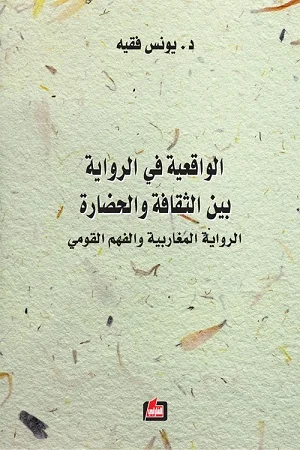 د. يونس فقيه
الواقعية في الرواية
بين الثقافة والحضارة
الرواية المغاربية والفهم القومي